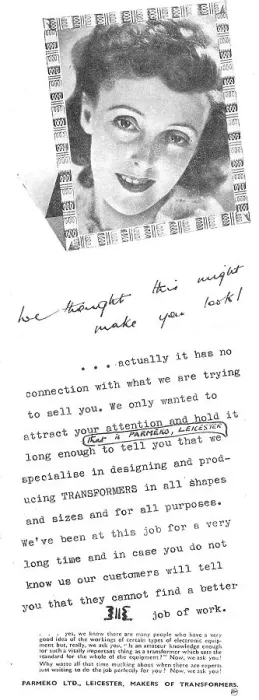 We thought this might
make you look!
. . . actually it has no
connection with what we are trying
to sell you. We only wanted to
attract your attention and hold it
that is PARMEKO, LEICESTER
long enough to tell you that we
specialise in designing and prod-
ucing TRANSFORMERS in all shapes
and sizes and for all purposes.
We've been at this job for a very
long time and in case you do not
know us our customers will tell
you that they cannot find a better
job of work.
. . . . yes, we know there are many people who have a very
good idea of the workings of certain types of electronic equip-
ment but, really, we ask you, "Is an amateur knowledge enough
for such a vitally important thing as a transformer which sets the
standard for the whole of the equipment?" Now, we ask you!
Why waste all that time mucking about when there are experts
just waiting to do the job perfectly for you? Now, we ask you!
PARMEKO LTD., LEICESTER, MAKERS OF TRANSFORMERS.